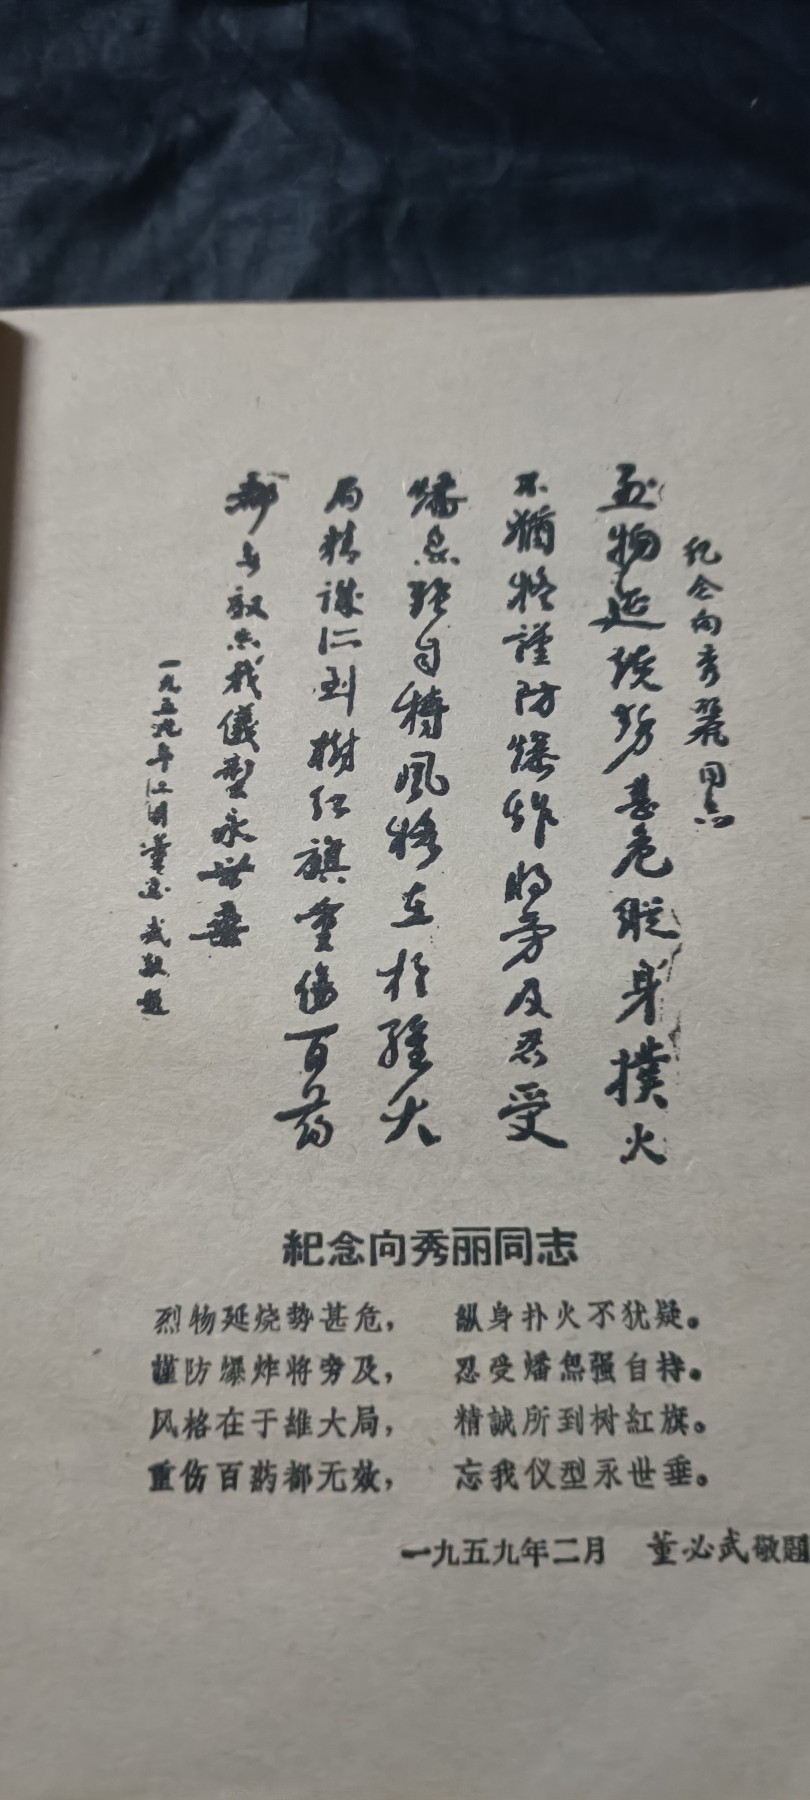 纪念向秀麗同志
烈物延烧势甚危纵身撲火
不犹疑謹防爆炸将旁及忍受
燔焦强自持風格在于維大
局精誠所到樹红旗重傷百药
都无效忘我儀型永世垂
一九五九年二月董必武敬題
紀念向秀丽同志
烈物延烧势甚危， 纵身扑火不犹疑。
謹防爆炸将旁及， 忍受燔焦强自持。
风格在于維大局， 精誠所到树紅旗。
重伤百葯都无效， 忘我仪型永世垂。
一九五九年二月 董必武敬題